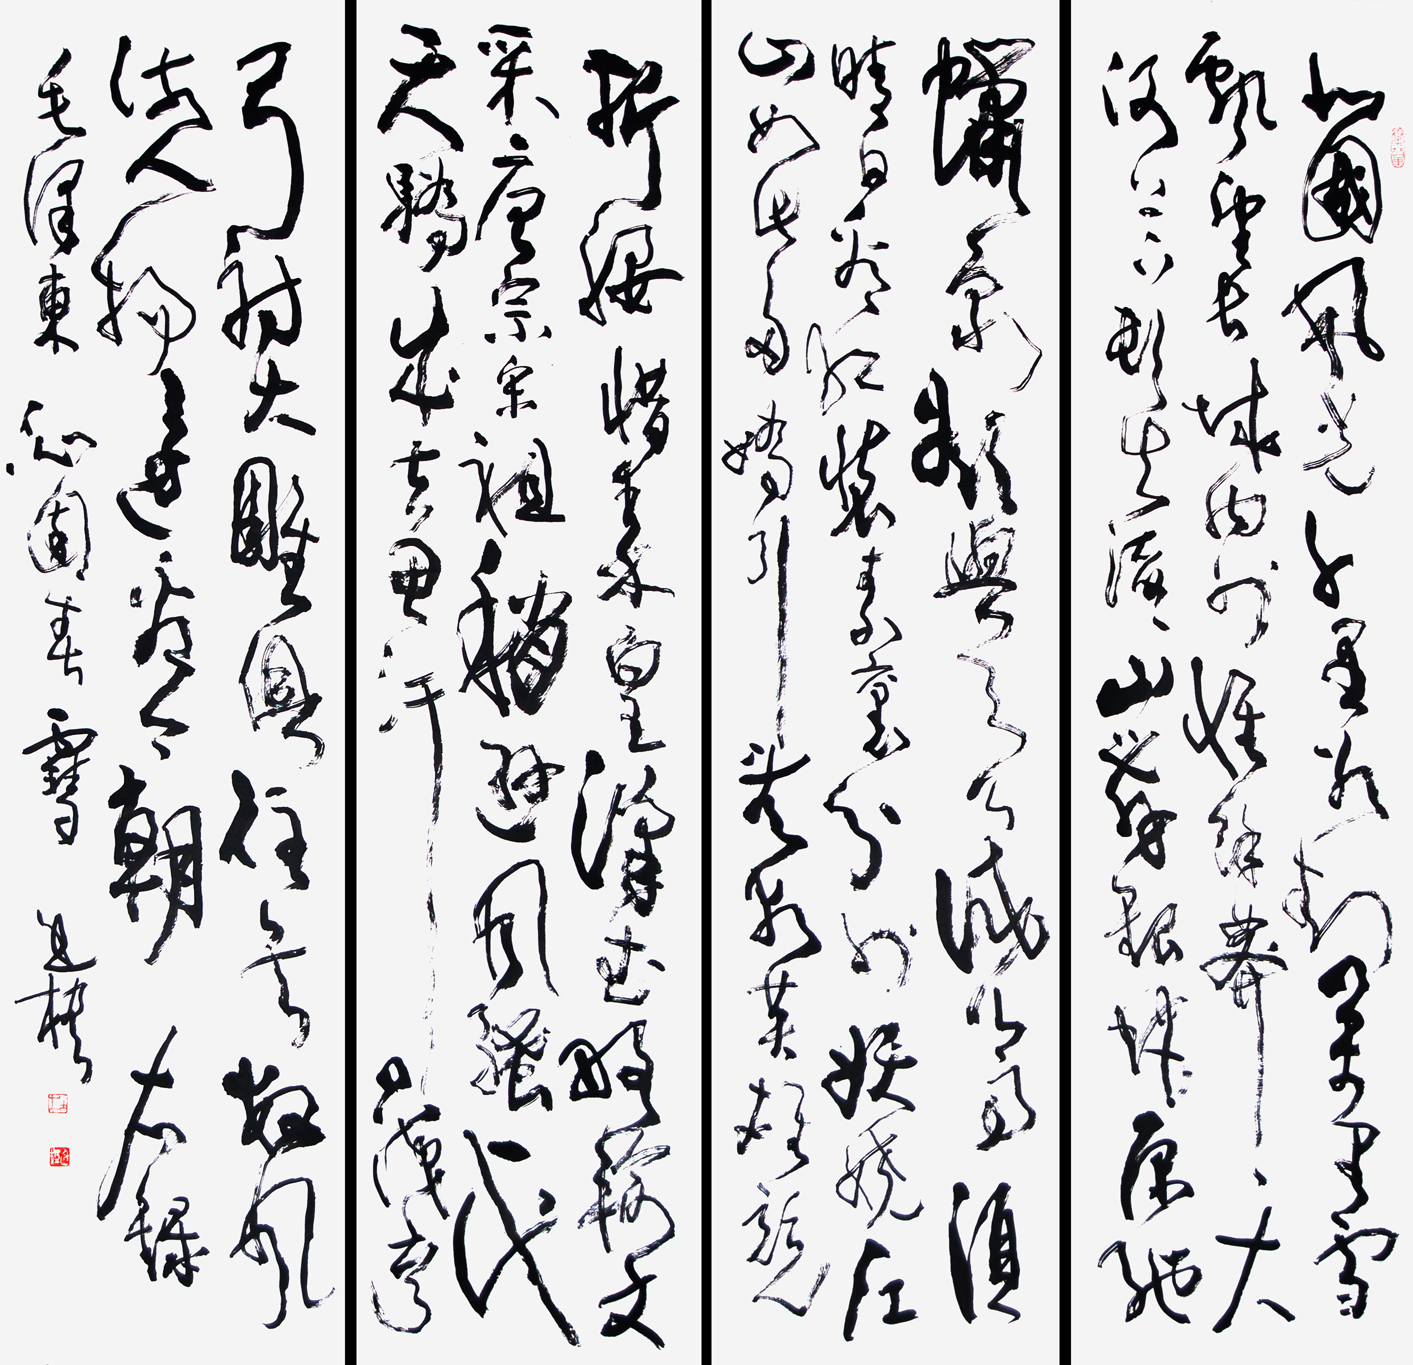 北國風光千里冰封萬里雪
飄望長城内外惟餘莽〻大
河上下頓失滔〻山舞銀蛇原馳
蠟象欲與天公試比高須
晴日看紅裝素裹分外妖嬈江
山如此多嬌引無數英雄競
折腰惜秦皇漢武略輸文
采唐宗宋祖稍遜風騷一代
天驕成吉思汗只識彎
弓射大雕俱往矣數風
流人物還看今朝 右錄
毛澤東沁園春雪